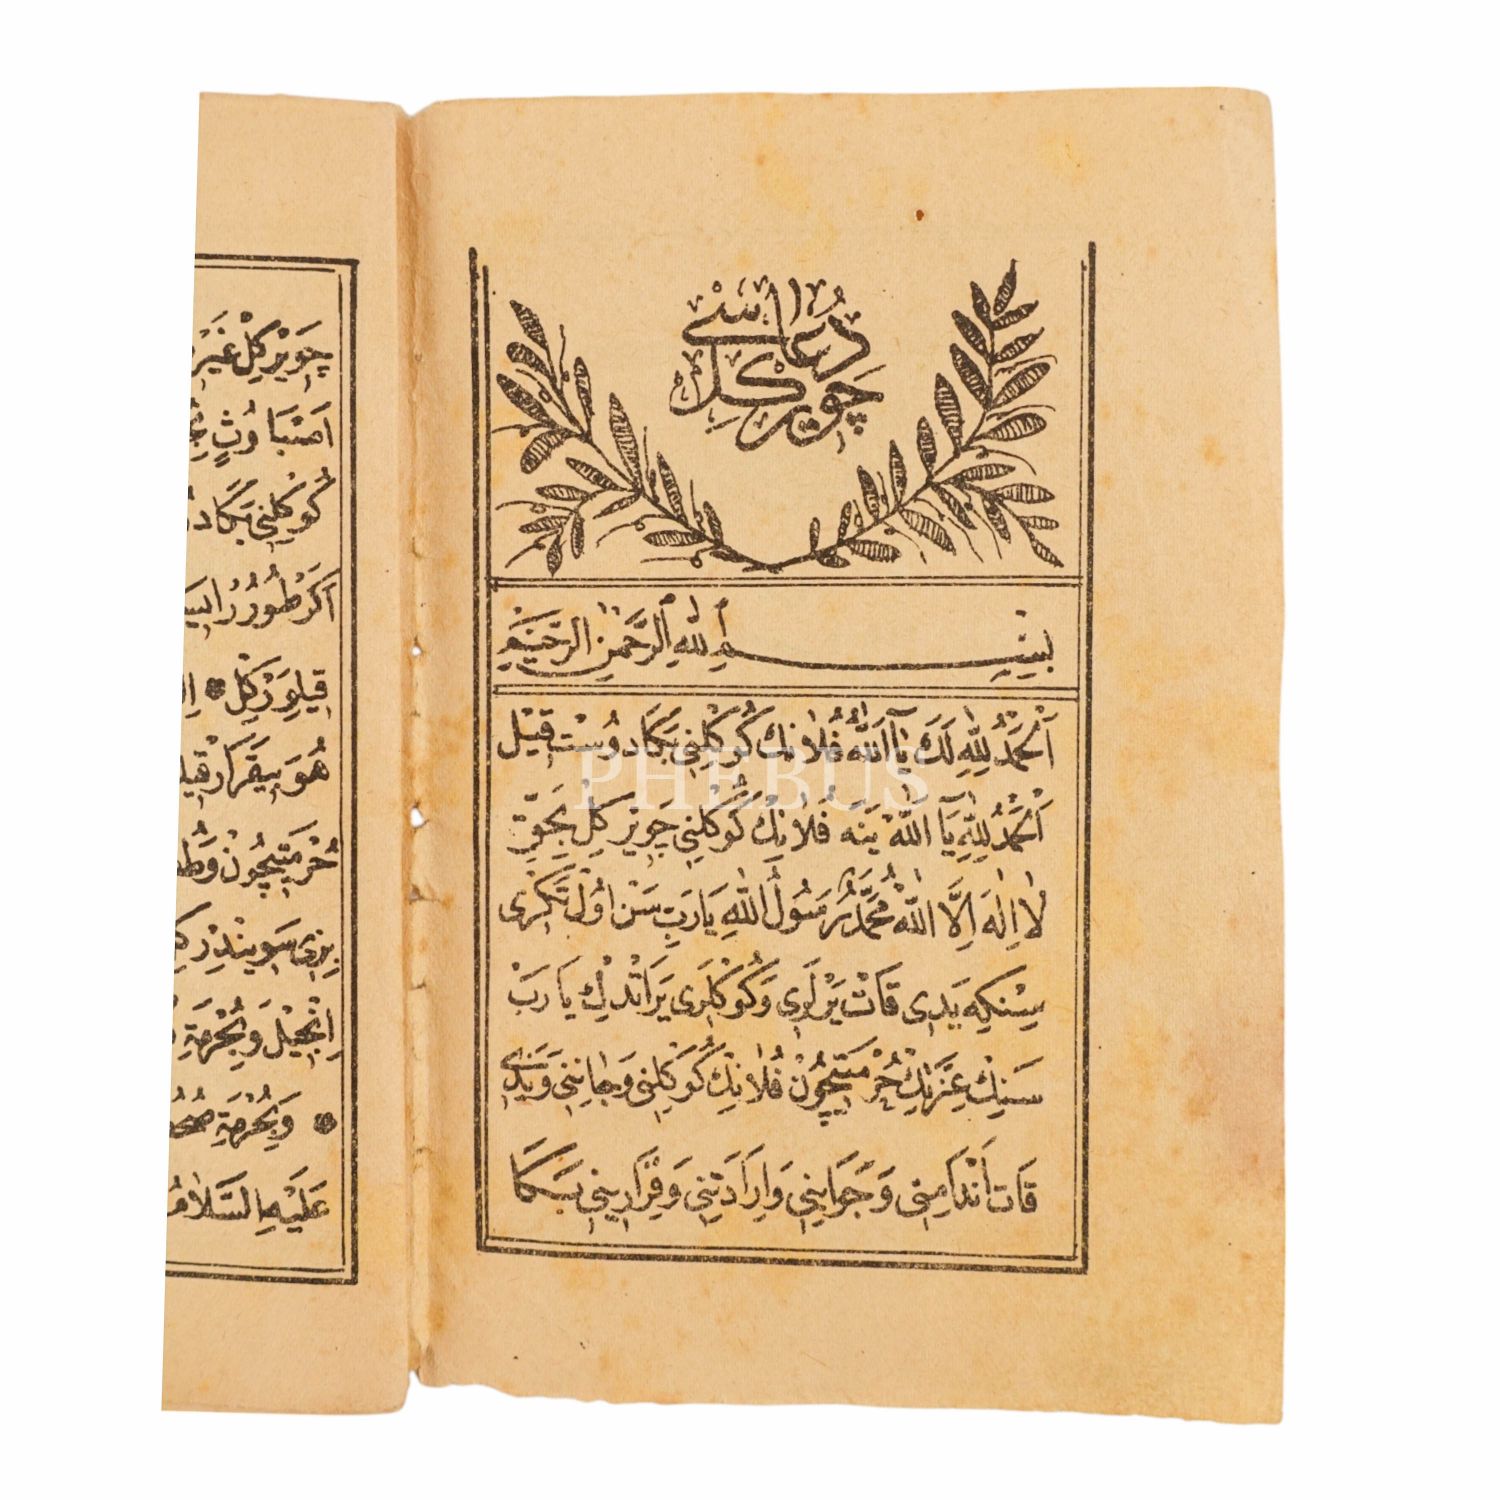 دُعَاسِی
چَوِیرْ کِلْ
بِسْمِ اللهِ الرَّحْمٰنِ الرَّحِیْمِ
اَلْحَمْدُ لِلّٰهِ لَكَ یَٓا اَللّٰهُ فُلَانِكْ كُوكْلِنِی بَكَا دُوسْت قِیْلْ
اَلْحَمْدُ لِلّٰهِ یَٓا اَللّٰهْ یَنَه فُلَانِكْ كُوكْلِنِی چَوِیرْ كِلْ بِحَقِّ
لَا اِلٰهَ اِلَّا اللّٰهُ مُحَمَّدٌ رَسُولُ اللّٰهِ یَارَبِّ سَنْ اُولْ تَكْرِی
سِنْكِه یَدِی قَاتْ یَرْلَرِی وَ كُوكْلَرِی یَرَاتْدِكْ یَا رَبْ
سَنِكْ عِزَّتِكْ حُرْمَتِیچُونْ فُلَانِكْ كُوكْلِنِی وَجَانِنِی وَیَدِی
قَات اَنْدَامِنِی وَ جَوَابِنِی وَاِرَادَتِنِی وَ قَرَارِینِی بَكَا
PHEBUS
چَوِیْرْ كِلْ
كُوكْلِنِی بَكَا
اَكَرْ طُورُرْ
قِیلِوِرْكِلْ
هُوَ بِیقَرَارْ
حُرْمَتِیچُونْ
بِزِی سَوِیندِرْ
اِنْجِیْلَ وَبِحُرْمَةِ
وَبِحُرْمَةِ
عَلَیْهِ السَّلَامُ